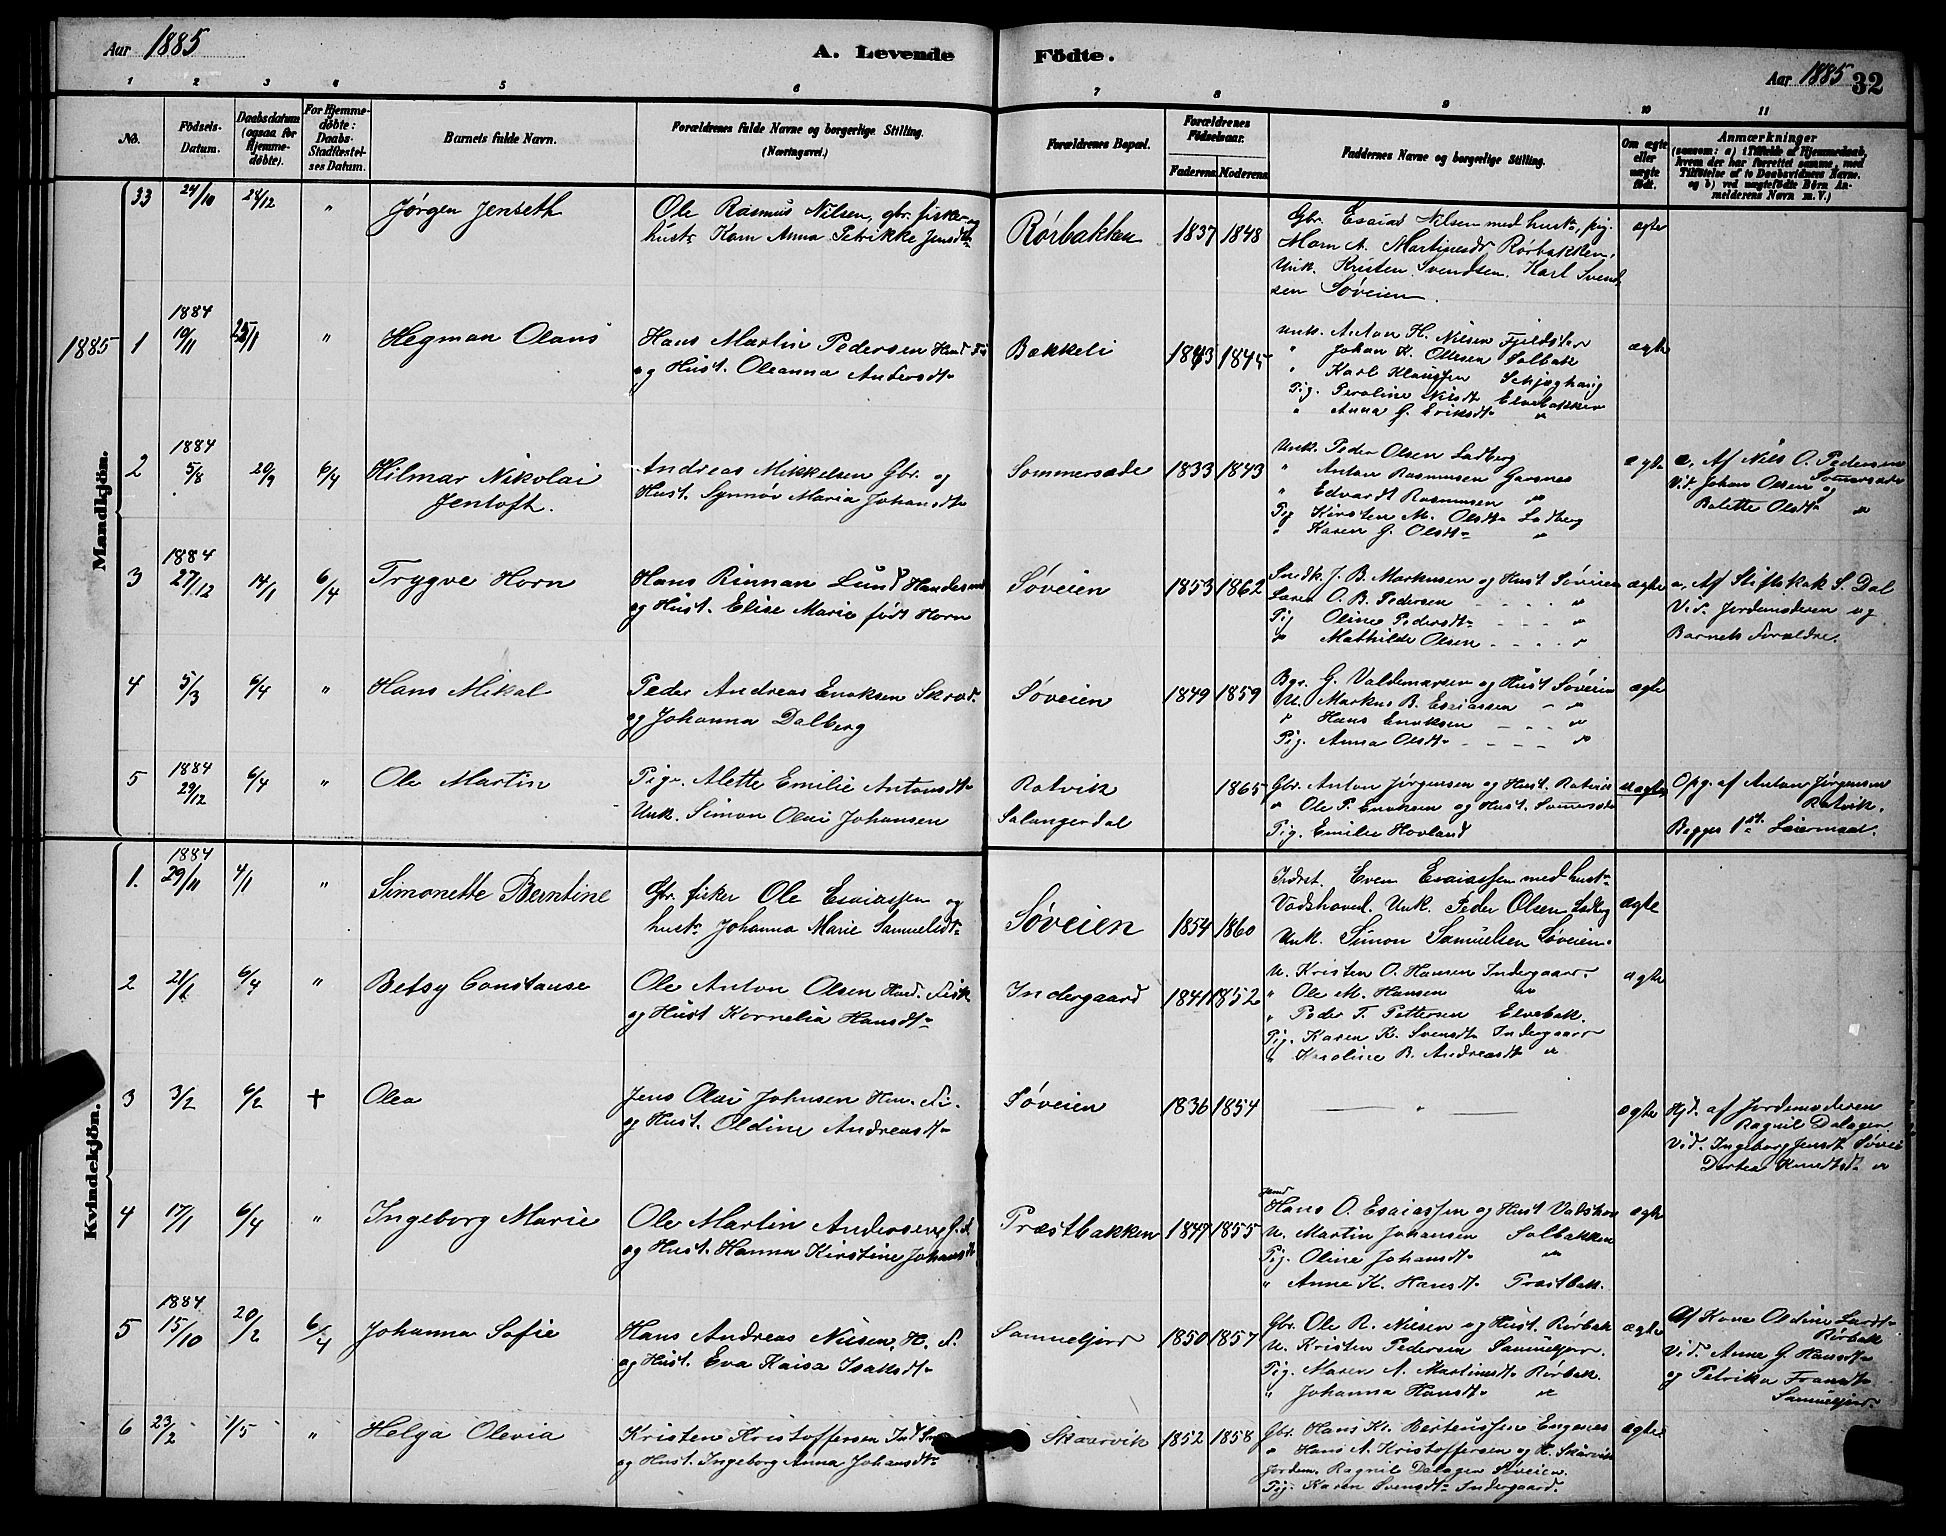 Aar 1885
A. Levende Födte.
Aar 1885 32
1 2 3 4 5 6 7 8 9 10 11
No.
Födsels-Datum.
Daabsdatum (ogsaa for Hjemmedöbte).
For Hjemmedöbte: Daabs-Stadfæstelses Datum.
Barnets fulde Navn.
Forældrenes fulde Navne og borgerlige Stilling. (Næringsvei.)
Forældrenes Bopæl.
Forældrenes Födselsaar.
Faderens. Moderens.
Faddernes Navne og borgerlige Stilling.
Om ægte eller uægte födt.
Anmærkninger
(saasom: a) i Tilfælde af Hjemmedaab, hvem der har forrettet samme, med Tilföielse af to Daabsvidners Navne. og b) ved uægtefödte Börn Anmelderens Navn m. V.)
Mandkjön.
33 24/10 24/12 " Jørgen Jenseth
Ole Rasmus Nilsen, gbr. fisker og
hust. Karn Anna Petrikke Jensdtr
Rørbakken 1837 1848
Gbr. Esaias Nilsen med hust., pig.
Marn A. Martinesdr Rørbakken,
Unk. Kristen Svendsen. Karl Svend
sen Søveien.
ægte
1885 1 1884 19/11 25/1 " Hegman Olaus
Hans Martin Pedersen Hmd Fi
og Hust. Oleanna Andersdtr
Bakkeli 1843 1845
Unk. Anton H. Nilsen Fjeldstør
" Johan K. Ottesen Solbak
" Karl Klaussen Schjæghaug
Pig. Peroline Nilsdt Elvebakken
" Anna G. Eriksdtr "
ægte
2 1884 5/8 20/9 6/4 Hilmar Nikolai
Jentoft.
Andreas Mikkelsen Gbr. og
Hust. Synnøv Maria Johansdtr
Sommersæde 1833 1843
Unk. Peder Olsen Ladberg
" Anton Rasmussen Garsnes
" Edvardt Rasmussen "
Pig Kirsten M. Olsdtr Ladberg
" Karen G. Olsdtr "
ægte
a, Af Nils O. Pedersen
Somersæde
Vid. Johan Olsen og
Balette Olsdtr "
3 1884 27/12 14/1 6/4 Trygve Horn
Hans Rinnan Lund Handelsmd
og Hust. Elise Marie født Horn
Søveien 1853 1862
Snedk. J. B. Markusen og Hust Søveien
Lærer O. B. Pedersen "
Pig Oline Pedersdtr "
" Mathilde Olsen "
ægte
a, Af Stiftskak S. Dal
Vid. Jordemoderen og
Barnets Forældre.
4 5/3 6/4 " Hans Mikal
Peder Andreas Enoksen Skræd.
og Johanna Dalberg
Søveien 1849 1859
Bgr. G. Valdemarsen og Hust Søveien
U. Markus B. Esaiassen "
" Hans Enoksen "
Pig. Anna Olsdtr "
ægte
5 1884 29/12 6/4 " Ole Martin
Pige Alette Emilie Antonsdtr
Unk. Simon Olai Johansen
Rotvik
Salangerdal
1865
Gbr. Anton Jørgensen og Hust. Rotvik
" Ole P. Enoksen og Hust. Somersæde
Pig. Emilie Hovland
uægte
Opg. af Anton Jørgensen
Rotvik.
Begges 1st Leiermaal.
Kvindekjön.
1. 1884 29/11 4/1 " Simonette Berntine
Gbr. fisker Ole Esaiassen og
hustr. Johanna Marie Samuelsdtr
Søveien 1854 1860
Indst. Even Esaiassen med hustr
Vadshoved. Unk. Peder Olsen Ladberg
Unk. Simon Samuelsen Søveien.
ægte
2 21/1 6/4 " Betsy Constanse
Ole Anton Olsen Hmd. Fisk
og Hust Kornelia Hansdtr
Indergaard 1841 1852
U. Kristen O. Hansen Indergaard.
" Ole M. Hansen "
" Peder T. Pettersen Elvebak.
Pig. Karen K. Svensdt Indergaard
" Karoline B. Andreasdt "
ægte
3 3/2 6/2 + Olea
Jens Olai Johnsen Hm. Fi.
og Hust. Oldine Andreasdtr
Søveien 1836 1854
"
ægte
Hjd. af Jordemoderen
Ragnil Dalager
Vid. Ingeborg Jensdt Søvei
Dortea Knudtsdt "
4 17/1 6/4 " Ingeborg Marie
Ole Martin Andersen G. F.
og Hust. Hanna Kirstine Johansdt
Præstbakken 1847 1855
Hans O. Esaiassen og Hust Vadshov
U. Martin Johansen Solbakken
Pig. Oline Johansdt "
" Anne K. Hansdt Præstbak.
ægte
5 1884 15/10 20/2 6/4 Johanna Sofie
Hans Andreas Nilsen, H. F.
og Hust. Eva Kaisa Isaksdtr
Samueljord 1850 1857
Gbr. Ole R. Nilsen og Hust. Rørbak
U. Kristen Pedersen Samueljord
Pig. Maren A. Martinsdt Rørbak.
" Johanna Hansdt "
ægte
Af Kone Oldine Larsdt
Rørbak
Vid. Anne G. Hansdt
og Petrika Fransdt
Samueljord.
6 23/2 1/5 " Helga Olevia
Kristen Kristoffersen
og Hust. Ingeborg Anna Johansdt
Skaarvik 1852 1858
Gbr. Hans Kr. Berteussen Engenes
" Hans A. Kristoffersen og H. Skårvik
Jordem. Ragnil Dalager Søveien.
Pig. Karen Svensdt Indergaard.
ægte